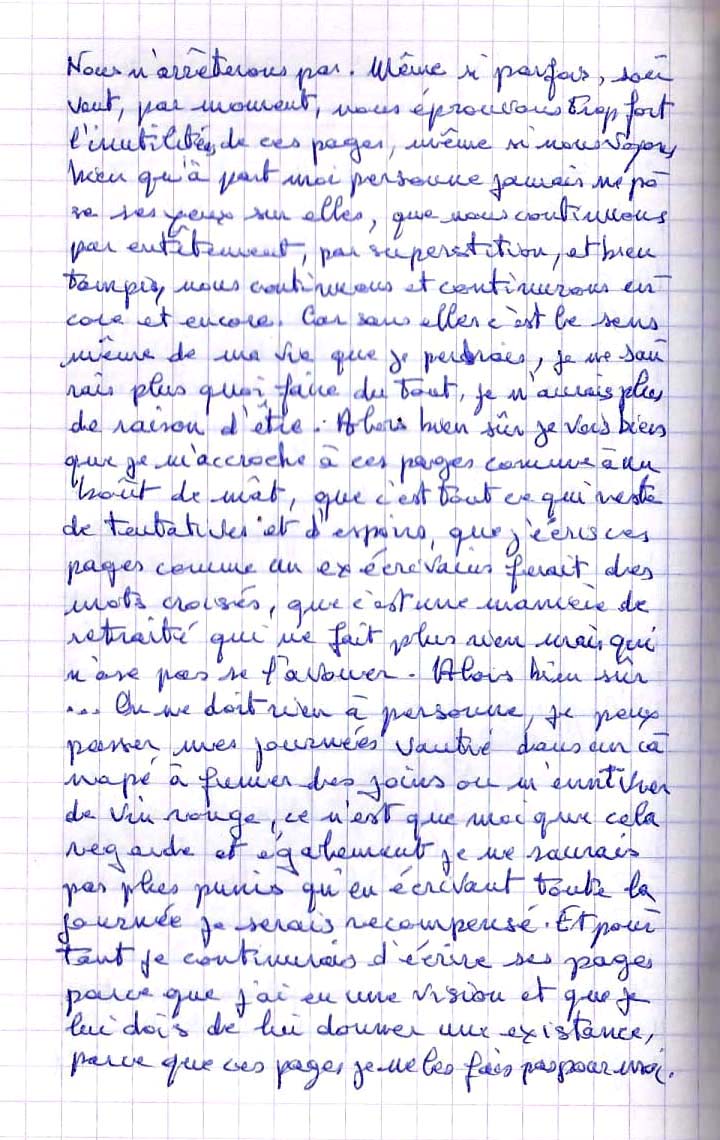 Nous n'arrêterons pas. Même si parfois, sou
vent, par moment, nous éprouvons trop fort
l'inutilités de ces pages, même si nous voyons
bien qu'à part moi personne jamais ne po
se ses yeux sur elles, que nous continuons
par entêtement, par superstition, et bien
tampis, nous continuons et continuerons en
core et encore. Car sans elles c'est le sens
même de ma vie que je perdrais, je ne sau
rais plus quoi faire du tout, je n'aurais plus
de raison d'être. Alors bien sûr je vois bien
que je m'accroche à ces pages comme à un
boût de mât, que c'est tout ce qui reste
de tentatives et d'espoirs, que j'écris ces
pages comme un ex écrivain ferait des
mots croisés, que c'est une manière de
retraité qui ne fait plus rien mais qui
n'ose pas se l'avouer. Alors bien sûr
... On ne doit rien à personne, je peux
passer mes journées vautré dans un ca
napé à fumer des joins ou m'
de vin rouge, ce n'est que moi que cela
regarde et également je ne saurais
pas plus punis qu'en écrivant toute la
journée je serais recompensé. Et pour
tant je continurais d'écrire ses pages
parce que j'ai eu une vision et que je
lui dois de lui donner une existance,
parce que ces pages je ne les fais pas pour moi.